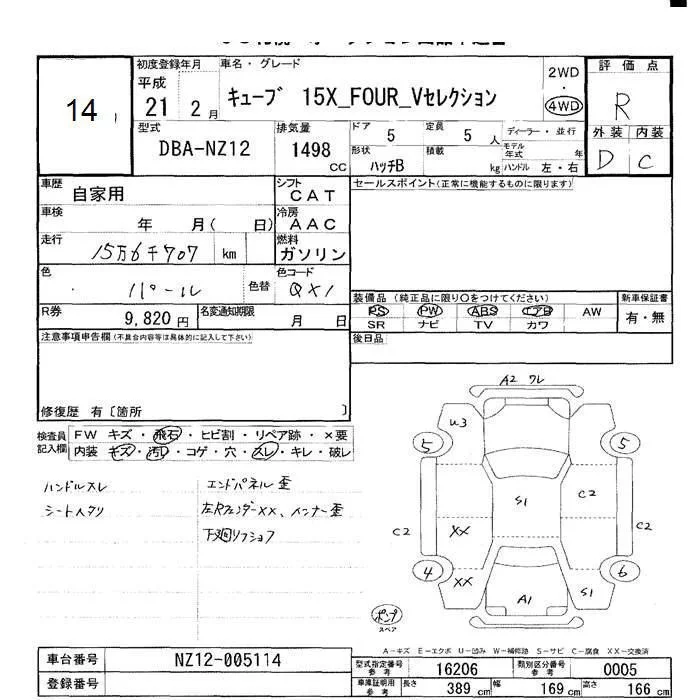 初度登録年月
平成
21 2 月
車名・グレード
キューブ 15X_FOUR_Vセレクション
2WD
・
4WD
評 価 点
R
外装 内装
D C
14
型式
DBA-NZ12
排気量
1498
CC
ドア
5
定員
5 人
ディーラー・並行
形状
ハッチB
積載
kg
モデル
年式 年
ハンドル 左・右
車歴
自家用
シフト
CAT
セールスポイント(正常に機能するものに限ります)
車検
年 月( 日)
冷房
AAC
走行
15万6千707 km
燃料
ガソリン
色
パール
色替
色コード
QX1
R券
9,820 円
名変通知期限
月 日
装備品 (純正品に限り○をつけてください)
PS PW ABS エアB AW
SR ナビ TV カワ
新車保証書
有・無
注意事項申告欄(不具合内容等は具体的に記入して下さい)
後日品
修復歴 有〔箇所 〕
検査員
記入欄
FW キズ・飛石・ヒビ割・リペア跡・×要
内装 キズ・汚れ・コゲ・穴・スレ・キレ・破レ
ハンドルスレ
シートヘタリ
エンドパネル歪
左RフェンダーXX、インナー歪
下廻リフショフ
A2 ワレ
U3
5
5
S1
C2
C2
C2
XX
4
XX
A1
S1
6
ポンプ
スペア
A-キズ E-エクボ U-凹み W-補修跡 S-サビ C-腐食 XX-交換済
車台番号
NZ12-005114
登録番号
型式指定番号
参考
16206
類別区分番号
参考
0005
車庫証明用
参考
長さ
389 cm
幅
169 cm
高さ
166 cm